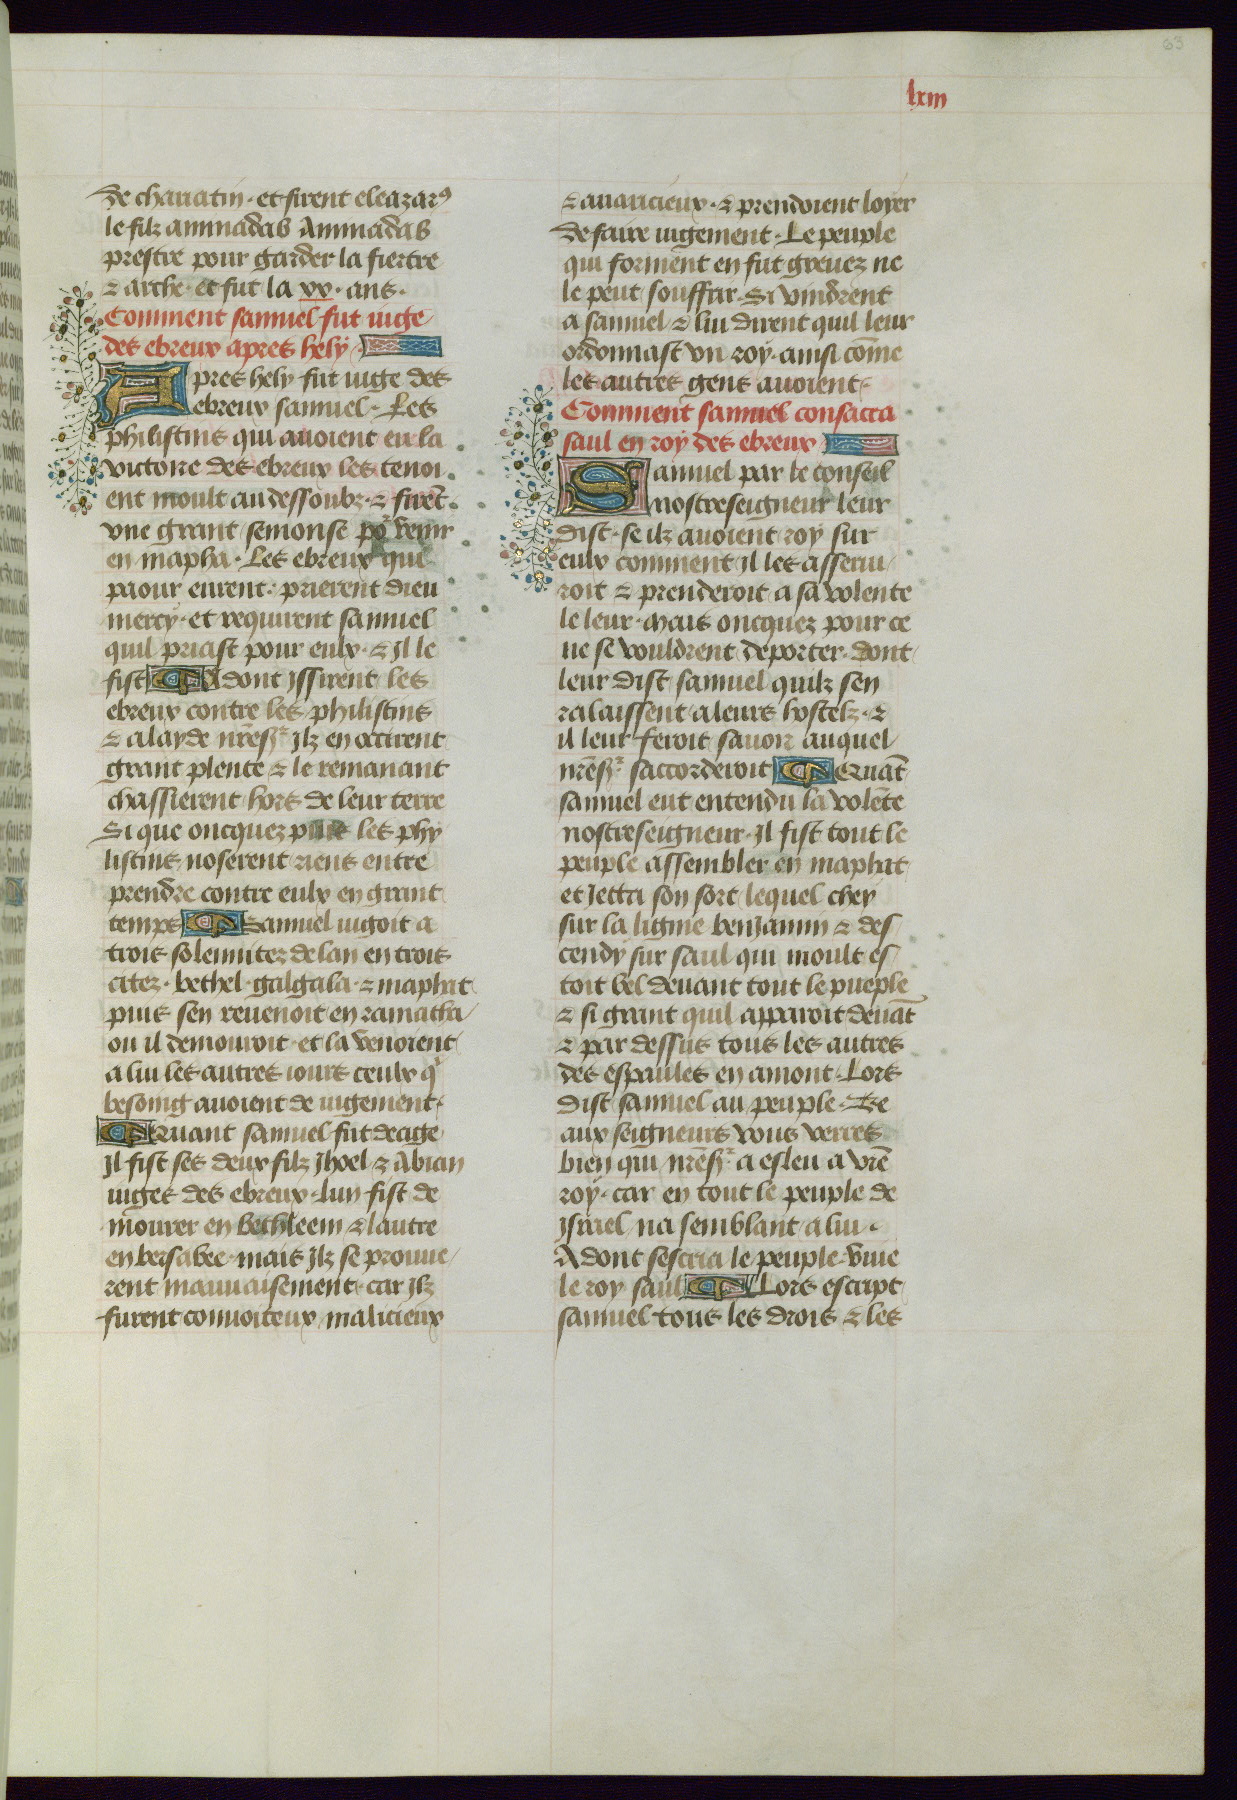 63
lxiii
de chariatin · et firent eleazarꝰ
le filz aminadab Aminadab
prestre pour garder la fiertre
⁊ arche · et fut la xx · ans ·
Comment samuel fut iuge
des ebreux apres hely ·
Apres hely fut iuge des
ebreux samuel · Les
philistins qui auoient eu la
victoire des ebreux les tenoi
ent moult au dessoubz · ⁊ firēt
vne grant semonse por venir
en mapha · Les ebreux qui
paour eurent · prierent dieu
mercy · et requirent samuel
quil priast pour eulx · ⁊ Il le
fist Adont Issirent les
ebreux contre les philistins
⁊ a layde nr̄esr Ilz en occirent
grant plente ⁊ le remanant
chassierent hors de leur terre
Si que oncquez puis les phy
listins noserent riens entre
prendre contre eulx en grant
temps Samuel iugoit a
trois solennitez de lan en trois
citez · bethel · galgala · ⁊ maphat
puis sen reuenoit en ramatha
ou il demouroit · et la venoient
a lui les autres iours ceulx q̄
besoing auoient de iugement ·
Quant samuel fut de eige
Il fist ses deux filz Ihoel ⁊ Abian
iuges des ebreux · lun fist de
mourer en bethleem ⁊ lautre
en bersabee · mais Ilz se prouue
rent mauuaisement · car Ilz
furent conuoiteux malicieux
⁊ auaricieux · ⁊ prendoient loyer
de faire iugement · Le peuple
qui forment en fut greuez ne
le peut souffrir · Si vindrent
a samuel ⁊ lui dirent quil leur
ordonnast vn roy · ainsi cōme
les autres gens auoient ·
Comment samuel consacra
saul en roy des ebreux
Samuel par le conseil
nostreseigneur leur
dist · se ilz auoient roy sur
eulx comment Il les asserui
roit ⁊ prenderoit a sa volente
le leur · Mais oncquez pour ce
ne se vouldrent deporter · dont
leur dist samuel quilz sen
ralaissent a leurs hostelz · ⁊
il leur feroit sauoir auquel
nr̄esr saccorderoit Quāt
samuel eut entendu la volēte
nostreseigneur · Il fist tout le
peuple assembler en maphat
et Jetta son sort lequel chey
sur la lignie benJamin ⁊ des
cendy sur saul qui moult es
toit bel deuant tout le pueple
⁊ si grant quil apparoit deuāt
⁊ par dessus tous les autres
des espaules en amont · Lors
dist samuel au peuple · Be
aux seigneurs vous verres
bien qui nr̄esr a esleu a vr̄e
roy · car en tout le peuple de
Israel na semblant a lui ·
Adont sescria le peuple · viue
le roy saul Lors escript
samuel tous les drois ⁊ les